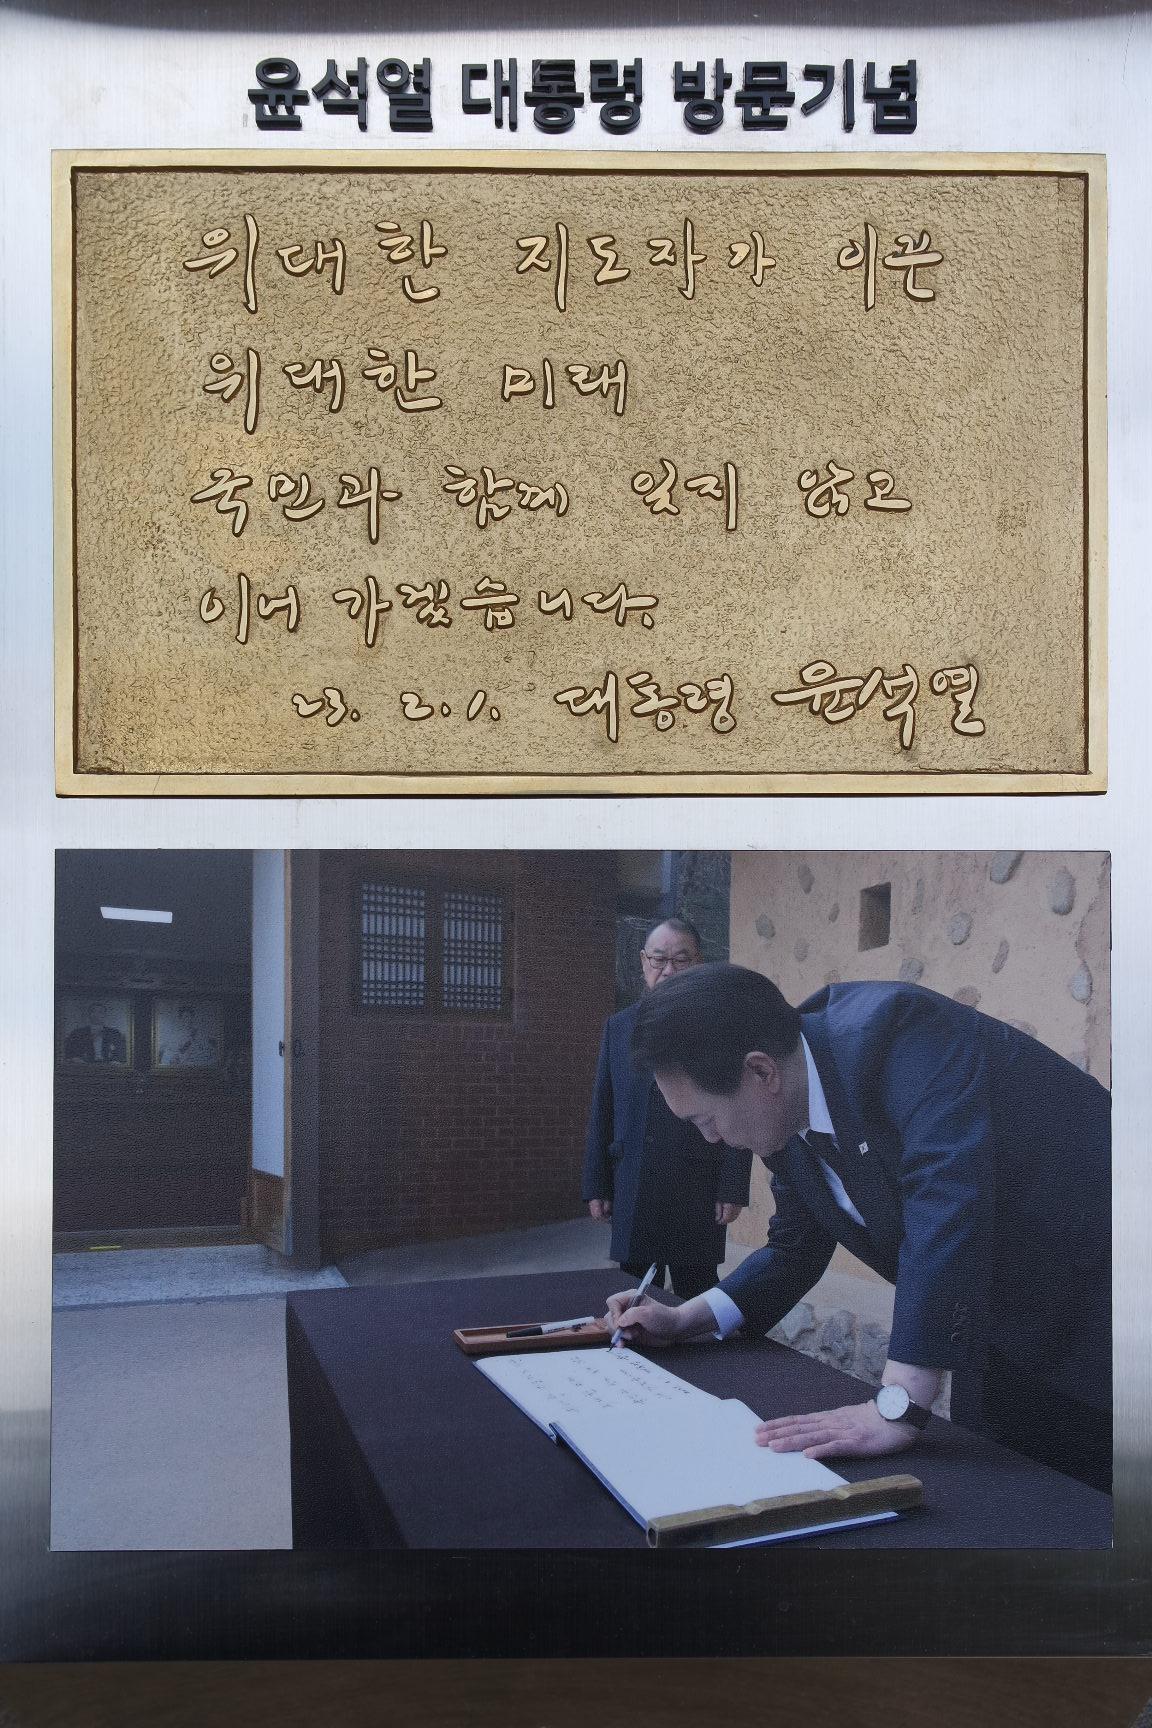 윤석열 대통령 방문기념
위대한 지도자가 이끈
위대한 미래
국민과 함께 잊지 않고
이어 가겠습니다.
23. 2. 1. 대통령 윤석열